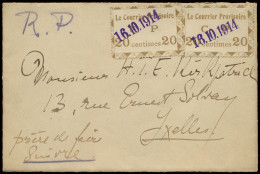 R.P.
Le Courrier Provisoire
Le Courrier Provisoire
16.10.1914
16.10.1914
20 centimes 20
20 centimes 20
Monsieur H.
13, rue Ernest Solvay
Ixelles
prière de faire
suivre